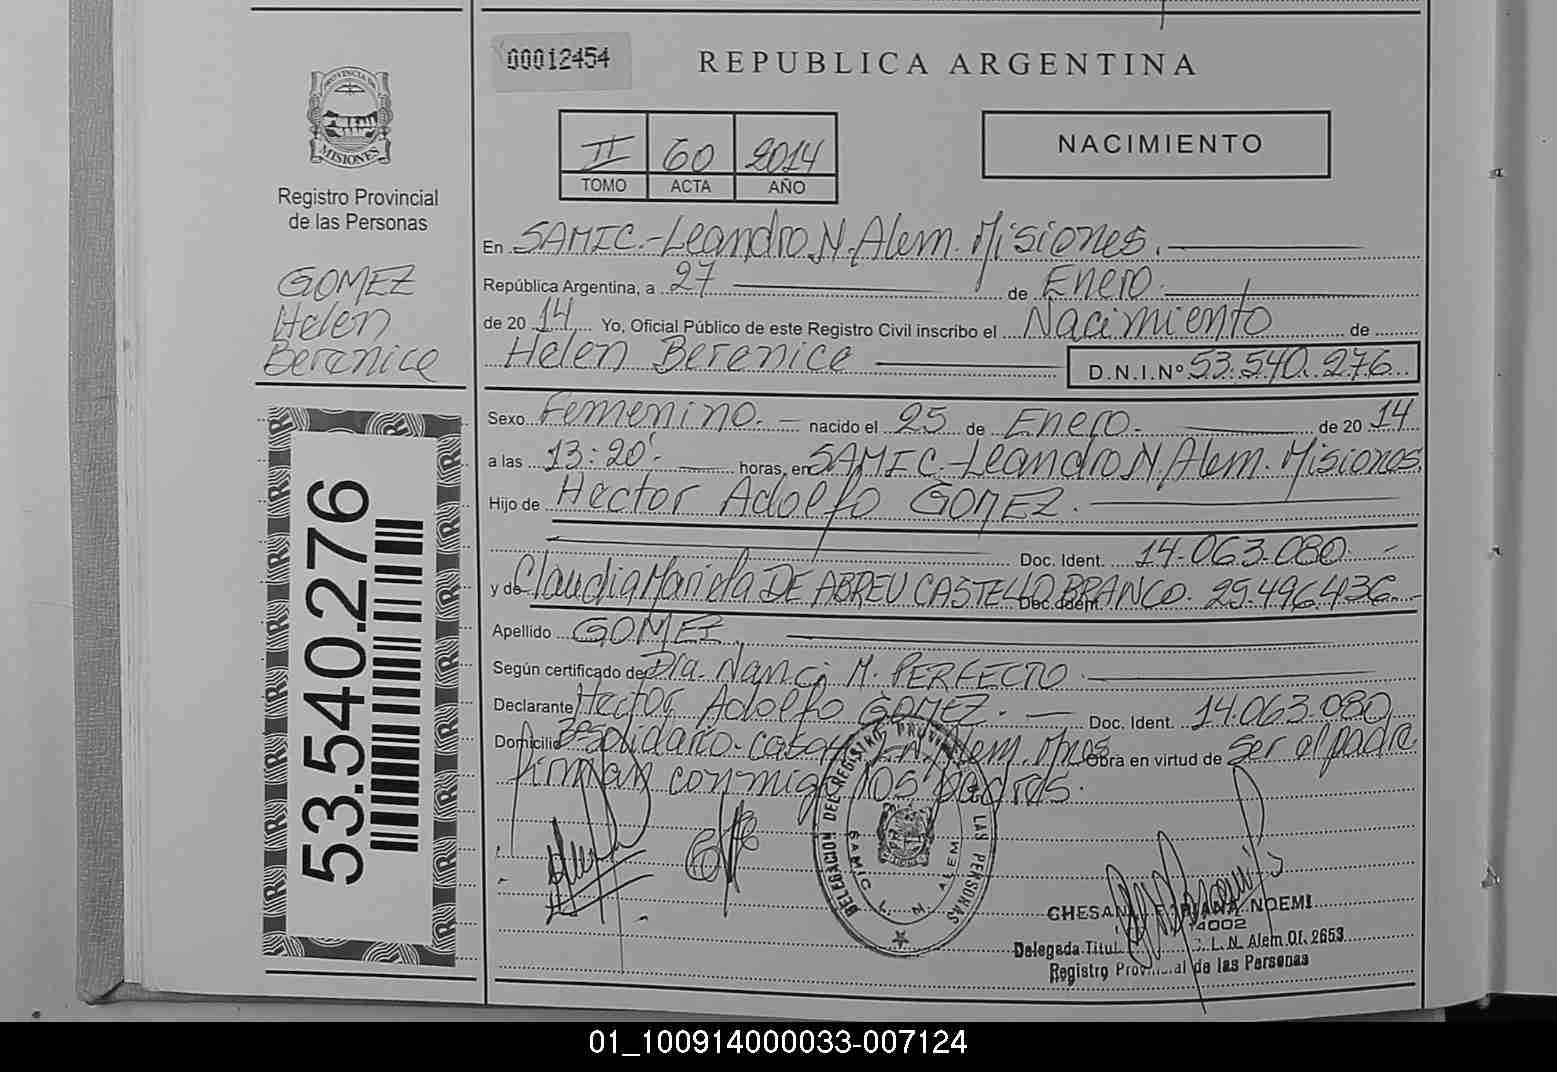 00012454
REPUBLICA ARGENTINA
PROVINCIA DE
MISIONES
Registro Provincial
de las Personas
II 60 2014
TOMO ACTA AÑO
NACIMIENTO
GOMEZ
Helen
Berenice
53.540.276
En SAMIC.-Leandro N. Alem. Misiones.
República Argentina, a 27 de Enero.
de 20 14 Yo, Oficial Público de este Registro Civil inscribo el Nacimiento de
Helen Berenice D.N.I.Nº 53.540.276
Sexo Femenino. - nacido el 25 de Enero. de 20 14
a las 13:20'. horas, en SAMIC-Leandro N. Alem. Misiones.
Hijo de Hector Adolfo GOMEZ.
Doc. Ident. 14-063-080 -
y de Claudia Mariela DE ABREU CASTELLO BRANCO. Doc. Ident. 25.496.436.-
Apellido GOMEZ.
Según certificado de Dra. Nanci M. PERFECTO.
Declarante Hector Adolfo GOMEZ. - Doc. Ident. 14.063.080
Domicilio Bº Solidario. casa L.N. Alem. Mnes Obra en virtud de Ser el padre
firman conmigo los padres.
DELEGACION DEL REGISTRO PROVINCIAL DE LAS PERSONAS
SAMIC L. N. ALEM
CHESANI FABIANA NOEMI
4002
Delegada Titul L.N. Alem Of. 2653
Registro Provincial de las Personas
01_100914000033-007124